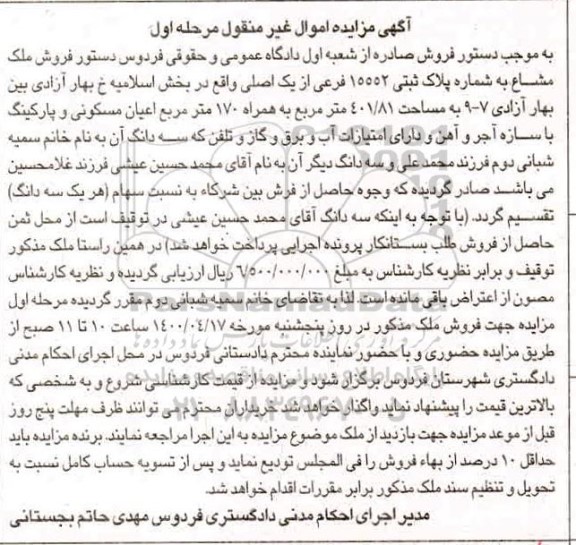 آگهی مزایده اموال غیر منقول مرحله اول
به موجب دستور فروش صادره از شعبه اول دادگاه عمومی و حقوقی فردوس دستور فروش ملک
مشاع به شماره پلاک ثبتی ۱۵۵۵۲ فرعی از یک اصلی واقع در بخش اسلامیه خ بهار آزادی بین
بهار آزادی ۷-۹ به مساحت ۴۰۱/۸۱ متر مربع به همراه ۱۷۰ متر مربع اعیان مسکونی و پارکینگ
با سازه آجر و آهن و دارای امتیازات آب و برق و گاز و تلفن که سه دانگ آن به نام خانم سمیه
شبانی دوم فرزند محمد علی و سه دانگ دیگر آن به نام آقای محمد حسین عیشی فرزند غلامحسین
می باشد صادر گردیده که وجوه حاصل از فرش بین شرکاء به نسبت سهام (هر یک سه دانگ)
تقسیم گردد. (با توجه به اینکه سه دانگ آقای محمد حسین عیشی در توقیف است از محل ثمن
حاصل از فروش طلب بستانکار پرونده اجرایی پرداخت خواهد شد) در همین راستا ملک مذکور
توقیف و برابر نظریه کارشناس به مبلغ ۶/۵۰۰/۰۰۰/۰۰۰ ریال ارزیابی گردیده و نظریه کارشناس
مصون از اعتراض باقی مانده است. لذا به تقاضای خانم سمیه شبانی دوم مقرر گردیده مرحله اول
مزایده جهت فروش ملک مذکور در روز پنجشنبه مورخه ۱۴۰۰/۰۴/۱۷ ساعت ۱۰ تا ۱۱ صبح از
طریق مزایده حضوری و با حضور نماینده محترم دادستانی فردوس در محل اجرای احکام مدنی
دادگستری شهرستان فردوس برگزار شود و مزایده از قیمت کارشناسی شروع و به شخصی که
بالاترین قیمت را پیشنهاد نماید واگذار خواهد شد خریداران محترم می توانند ظرف مهلت پنج روز
قبل از موعد مزایده جهت بازدید از ملک موضوع مزایده به این اجرا مراجعه نمایند. برنده مزایده باید
حداقل ۱۰ درصد از بهاء فروش را فی المجلس تودیع نماید و پس از تسویه حساب کامل نسبت به
تحویل و تنظیم سند ملک مذکور برابر مقررات اقدام خواهد شد.
مدیر اجرای احکام مدنی دادگستری فردوس مهدی حاتم بجستانی